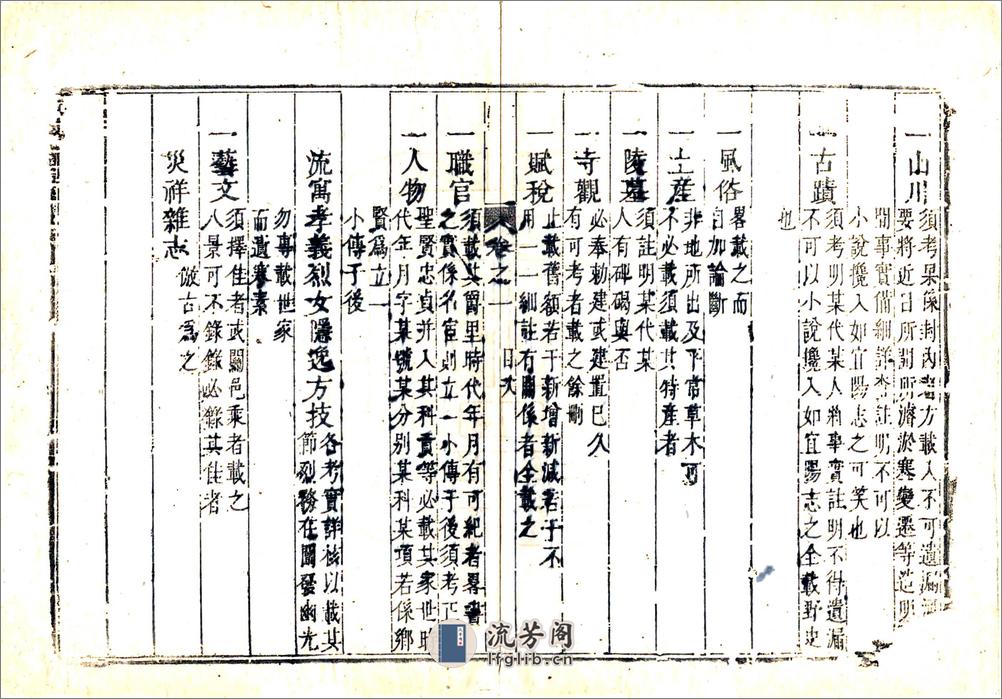 一山川 須考果係封內者方載入不可遺漏
要將近日所開所濬淤塞變遷等造明
開事實備細詳查註明不可以
小說攙入如宜陽志之可笑也
一古蹟 須考明某代某人將事實註明不得遺漏
不可以小說攙入如宜陽志之全載野史
也
一風俗 畧載之而
自加論斷
一土產 非地所出及平常草木可
不必載須載其特產者
一陵墓 須註明某代某
人有碑碣與否
一寺觀 必奉勅建或建置已久
有可考者載之餘刪
一賦稅 止載舊額若干新增新減若干不
用一一細註有關係者全載之
卷之一
目次
一職官 須載其爵里時代年月有可紀者畧書
之實係名宦則立一小傳于後須考正
一人物 聖賢忠貞并入其科貢等必載其家世時
代年月字某號某分別某科某項若係鄉
賢爲立一
小傳于後
流寓孝義烈女隱逸方技 各考實詳核以載其
節烈務在闡發幽光
勿專載世家
而遺寒素
一藝文 須擇佳者或關邑乘者載之
八景可不錄錄必錄其佳者
災祥雜志 倣古爲之
流芳阁
lfglib.cn